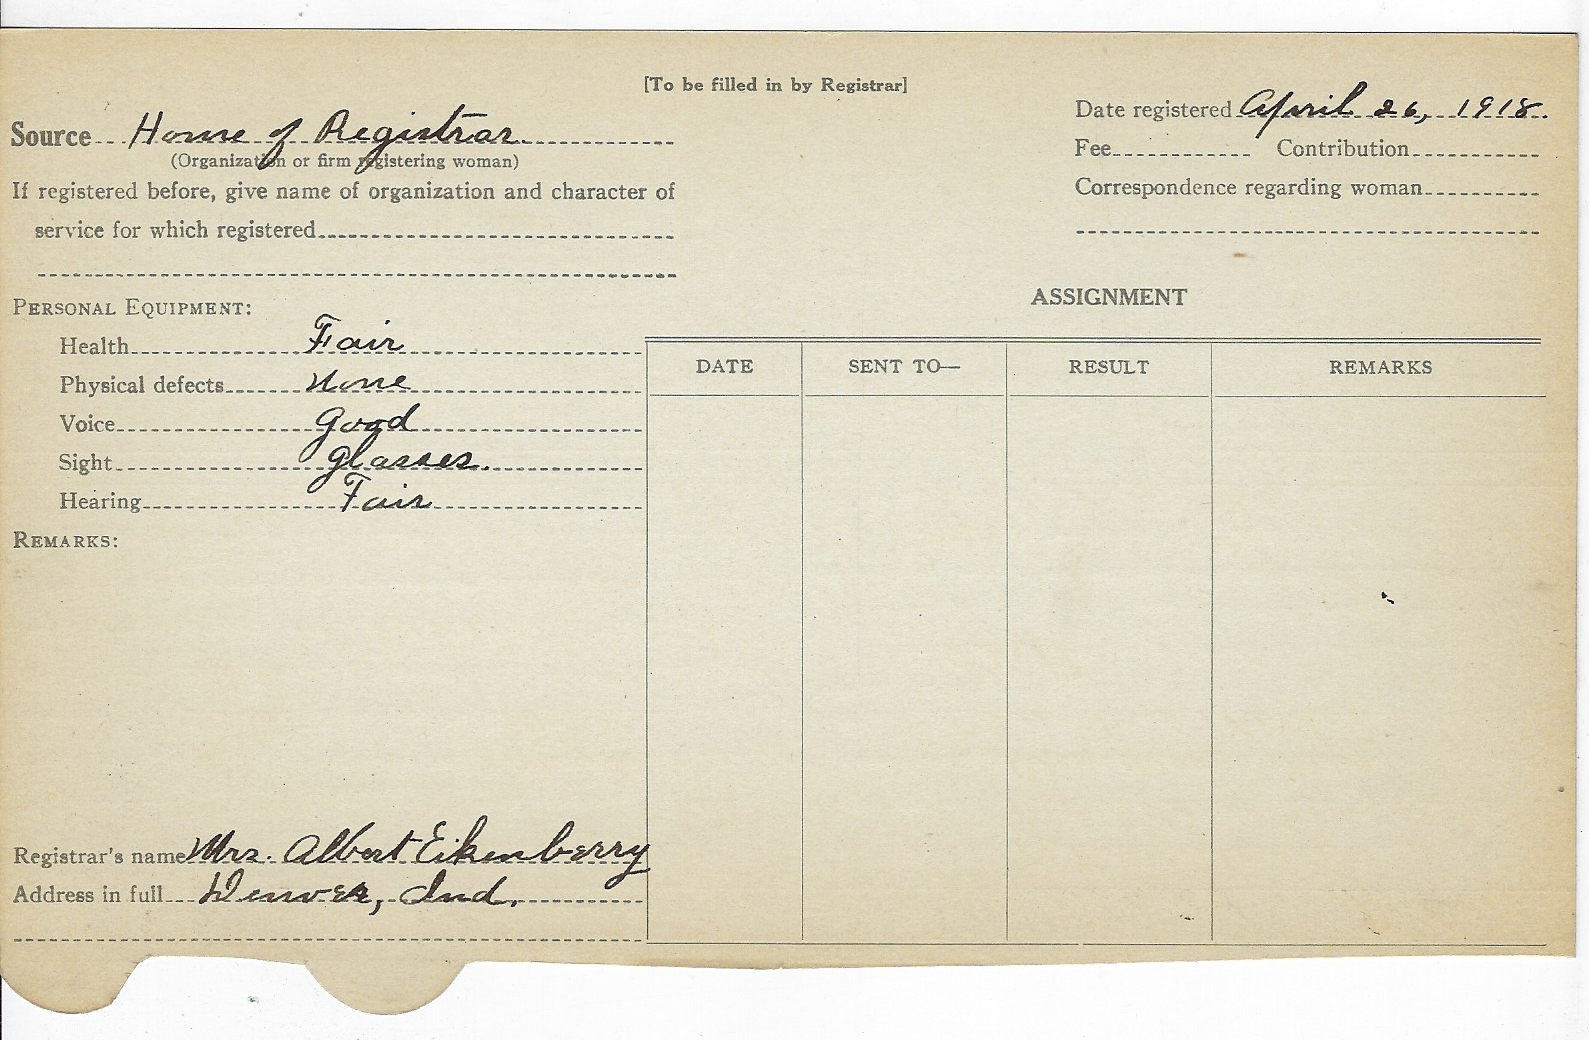 [To be filled in by Registrar]
Source Home of Registrar.
(Organization or firm registering woman)
If registered before, give name of organization and character of
service for which registered
Date registered April 26, 1918.
Fee Contribution
Correspondence regarding woman
PERSONAL EQUIPMENT:
Health Fair
Physical defects None
Voice Good
Sight glasses.
Hearing Fair
REMARKS:
ASSIGNMENT
DATE SENT TO— RESULT REMARKS
Registrar's name Mrs. Albert Eikenberry
Address in full Denver, Ind.